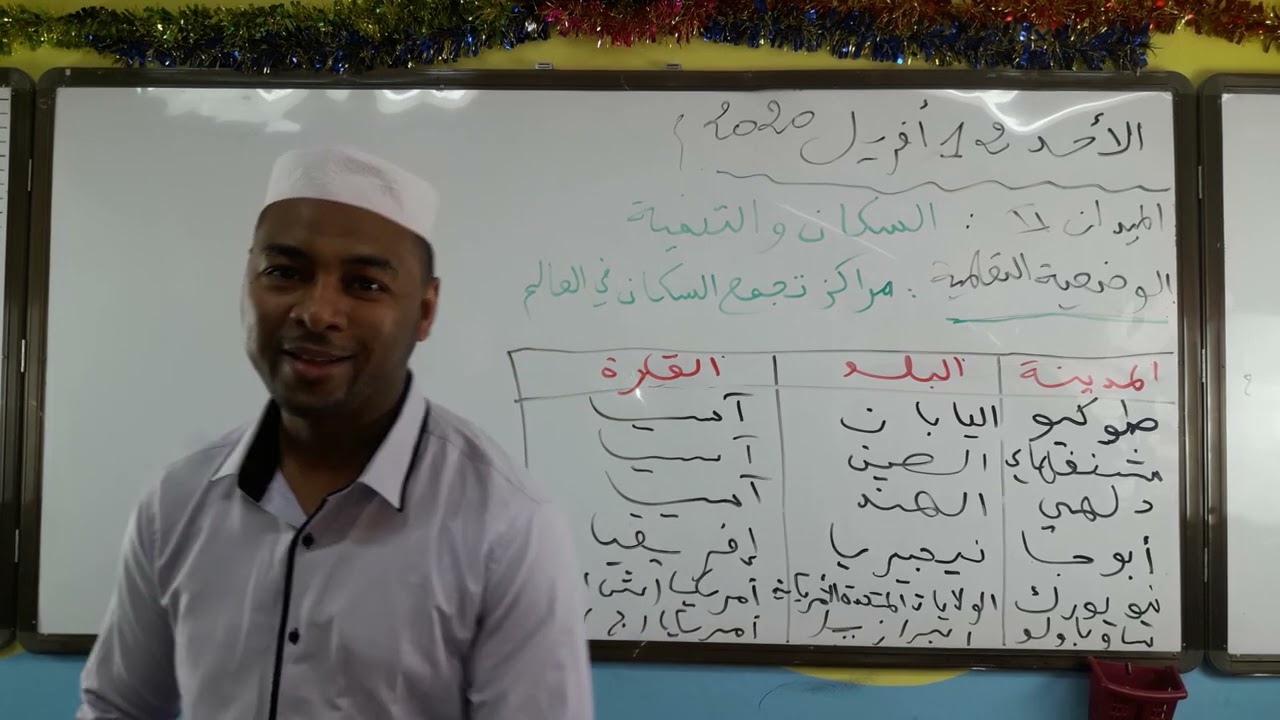 الأحد 12 أفريل 2020 م
الميدان II : السكان والتنمية
الوضعية التعلمية : مراكز تجمع السكان في العالم
المدينة البلد القارة
طوكيو اليابان آسيا
شنغهاي الصين آسيا
دلهي الهند آسيا
أبوجا نيجيريا إفريقيا
نيويورك الولايات المتحدة الأمريكية أمريكا (ش
ساوباولو البرازيل أمريكا (ج